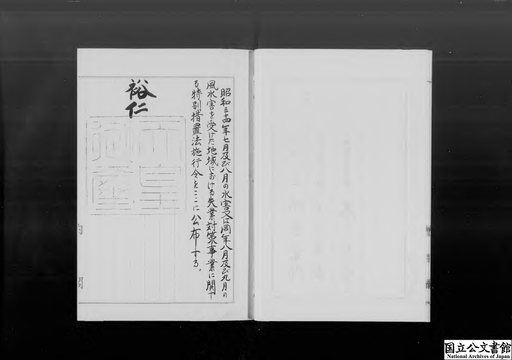 昭和三十四年七月及び八月の水害又は同年八月及び九月の
風水害を受けた地域における失業対策事業に関す
る特別措置法施行令をここに公布する。
裕仁
天皇
御璽
国立公文書館
National Archives of Japan